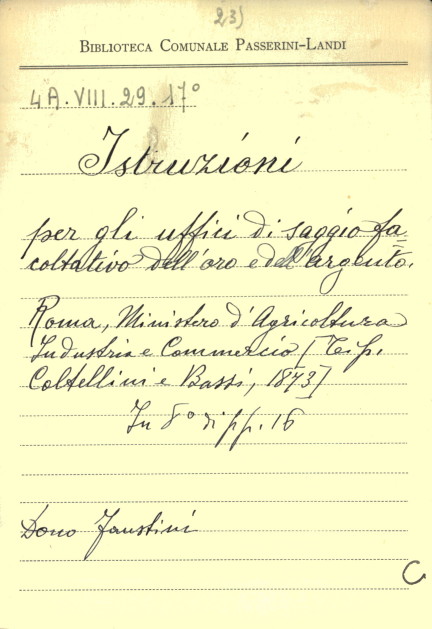 23)
BIBLIOTECA COMUNALE PASSERINI-LANDI
4A.VIII.29.17°
Istruzioni
per gli uffici di saggio fa
coltativo dell'oro e dell'argento.
Roma, Ministero d'Agricoltura
Industria e Commercio [Tip.
Coltellini e Bassi, 1873]
In 8° di pp. 16
Dono Faustini
C